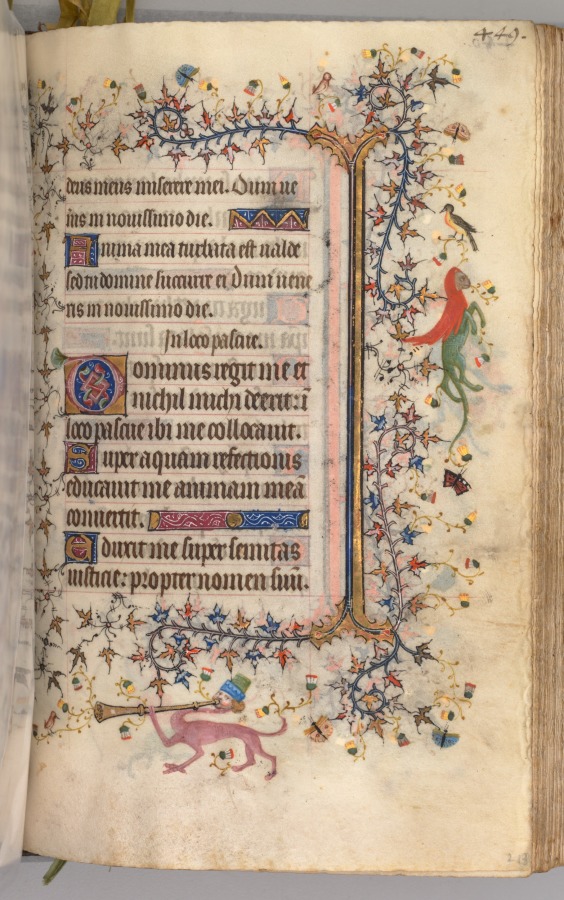 449.
deus meus miserere mei. Dum ue
nis in nouissimo die.
Anima mea turbata est ualde
sed tu domine succurre ei Dum uene
ris in nouissimo die.
In loco pascue.
Dominus regit me et
nichil michi deerit: i
loco pascue ibi me collocauit.
Super aquam refectionis
educauit me animam meā
conuertit.
Eduxit me super semitas
iusticie: propter nomen suū.